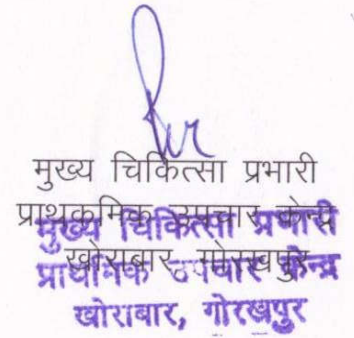 मुख्य चिकित्सा प्रभारी
प्राथकमिक उपचार केन्द्र
खोराबार गोरखपुर
मुख्य चिकित्सा प्रभारी
प्राथमिक उपचार केन्द्र
खोराबार, गोरखपुर